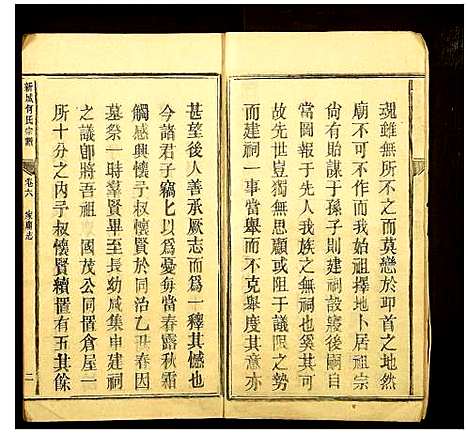 魂雖無所不之而莫戀於卽首之地然
廟不可不作而我始祖擇地卜居祖宗
尙有貽謀于孫子則建祠設寢後嗣自
當圖報于先人我族之無祠也奚其可
故先世豈獨無思顧或沮于議限之勢
而建祠一事當舉而不克舉度其意亦
甚望後人善承厥志而爲一釋其憾也
今諸君子竊比以爲憂每當春露秋霜
觸感興懷子叔懷賢於同治乙丑春因
墓祭一時羣賢畢至長幼咸集申建祠
之議卽將吾祖 國茂公同置倉屋一
所十分之內子叔懷賢續置有五其餘
新城何氏宗譜
卷六 家廟志
二